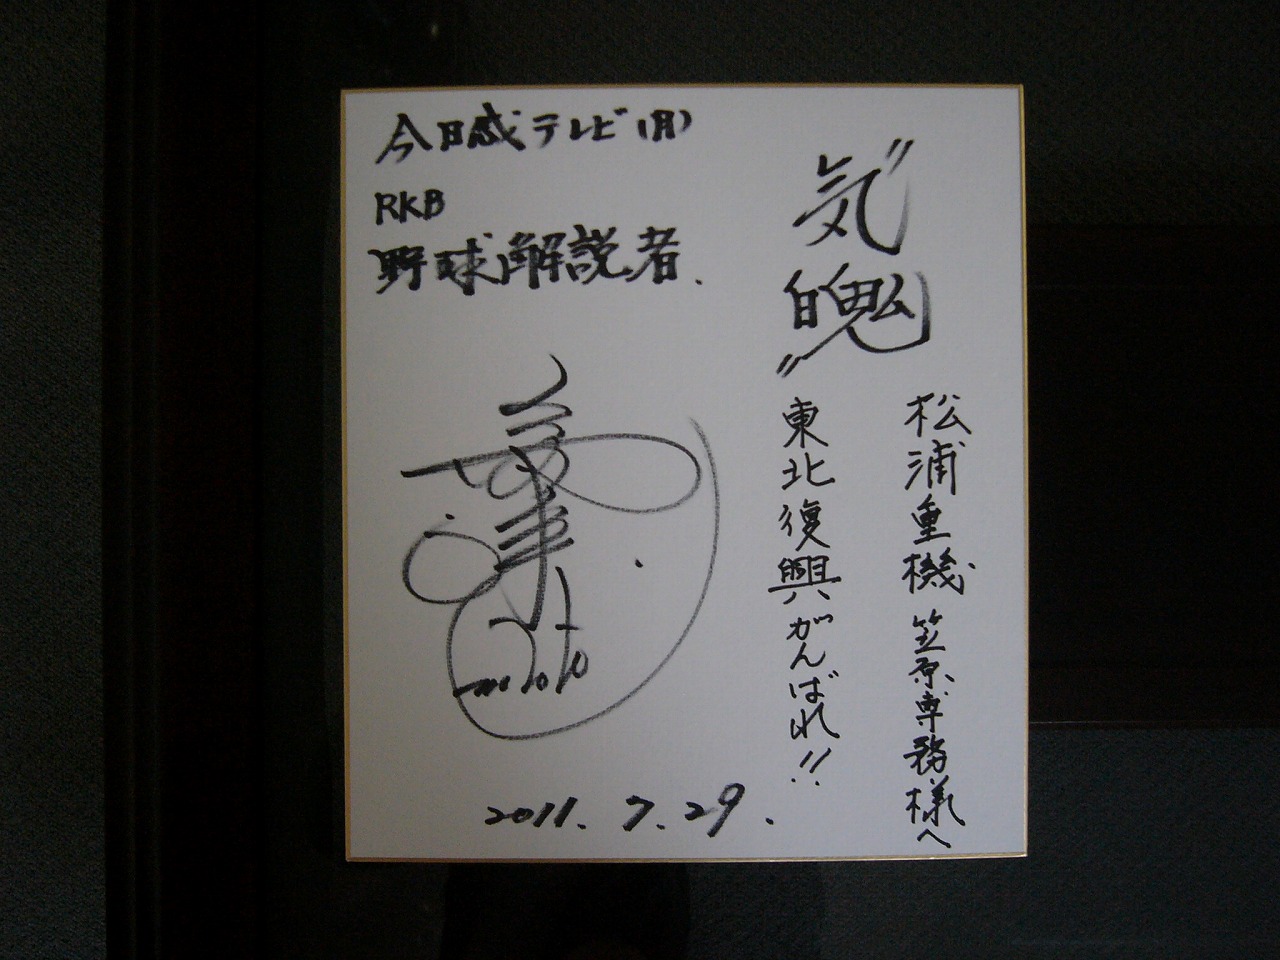 今日感テレビ(月)
RKB
野球解説者.
"気魄"
松浦重機 笠原専務様へ
東北復興がんばれ!!
2011. 7. 29.